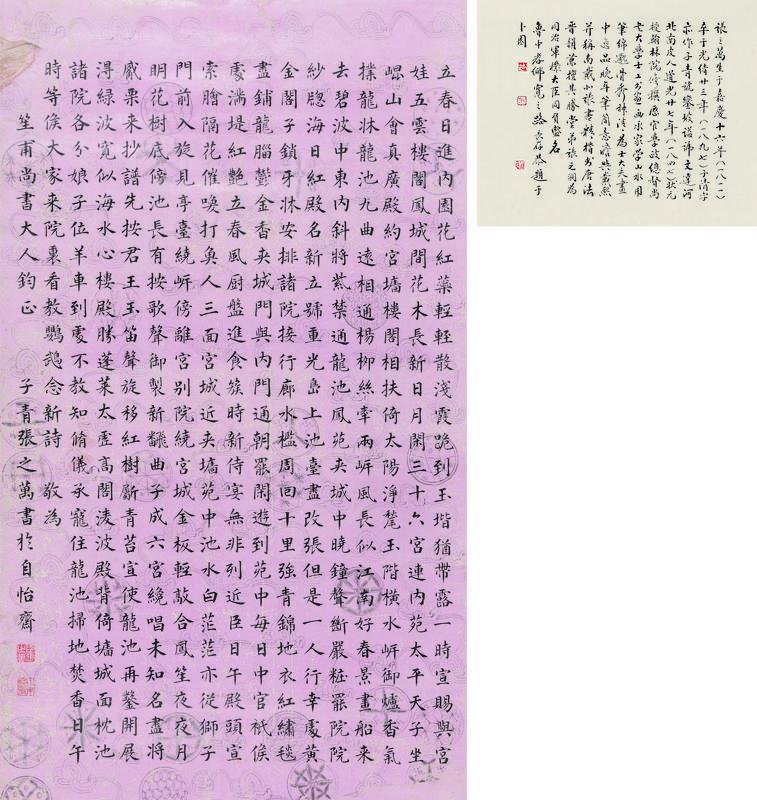 立春日進內園花紅蘂輕輕散淺霞跪到玉堦猶帶露一時宣賜與宮
娃五雲樓閣鳳城間花木長新日月閑三十六宮連內苑太平天子坐
崐山會真廣殿約宮墻樓閣相扶倚太陽淨甃玉階橫水岍御爐香氣
撲龍牀龍池九曲遠相通楊柳絲牽兩岍風長似江南好春景畫船來
去碧波中東內斜將紫禁通龍池鳳苑夾城中曉鐘聲斷嚴粧罷院院
紗牕海日紅殿名新立號重光島上池臺盡改張但是一人行幸處黃
金閣子鎖牙牀安排諸院接行廊水檻周回十里強青錦地衣紅繡毯
盡鋪龍腦鬱金香夾城門與內門通朝罷閑遊到苑中每日中官祇候
處滿堤紅艷立春風厨盤進食簇時新侍宴無非列近臣日午殿頭宣
索膾隔花催喚打魚人三面宮城近夾墻苑中池水白茫茫亦從獅子
門前入旋見亭臺繞岍傍離宮別院繞宮城金板輕敲合鳳笙夜夜月
明花樹底傍池長有按歌聲御製新翻曲子成六宮纔唱未知名盡將
觱栗來抄譜先按君王玉笛聲旋移紅樹斸青苔宣使龍池再鑿開展
淂綠波寬似海水心樓殿勝蓬萊太虛高閣淩波殿背倚墻城面枕池
諸院各分娘子位羊車到處不教知脩儀承寵住龍池掃地焚香日午
時等候大家來院裏看教鸚鵡念新詩 敬為
笙甫尚書大人鈞正 子青張之萬書於自怡齋
張之萬生于嘉慶十六年(一八一一)
卒于光緒廿三年(一八九七)子清字
子青號鑾坡謚號文達河
北南皮人道光廿七年(一八四七)狀元
授翰林院修撰歷官學政總督尚
大學士上書畫承家學山水用
筆綿邈骨秀神清為士大夫畫
中逸品晚年筆簡意
并稱南戴北張書精楷書唐法
晉韻兼擅其勝堂弟張之洞為
同治軍機大臣同負盛名
魯中 趙于
卜園